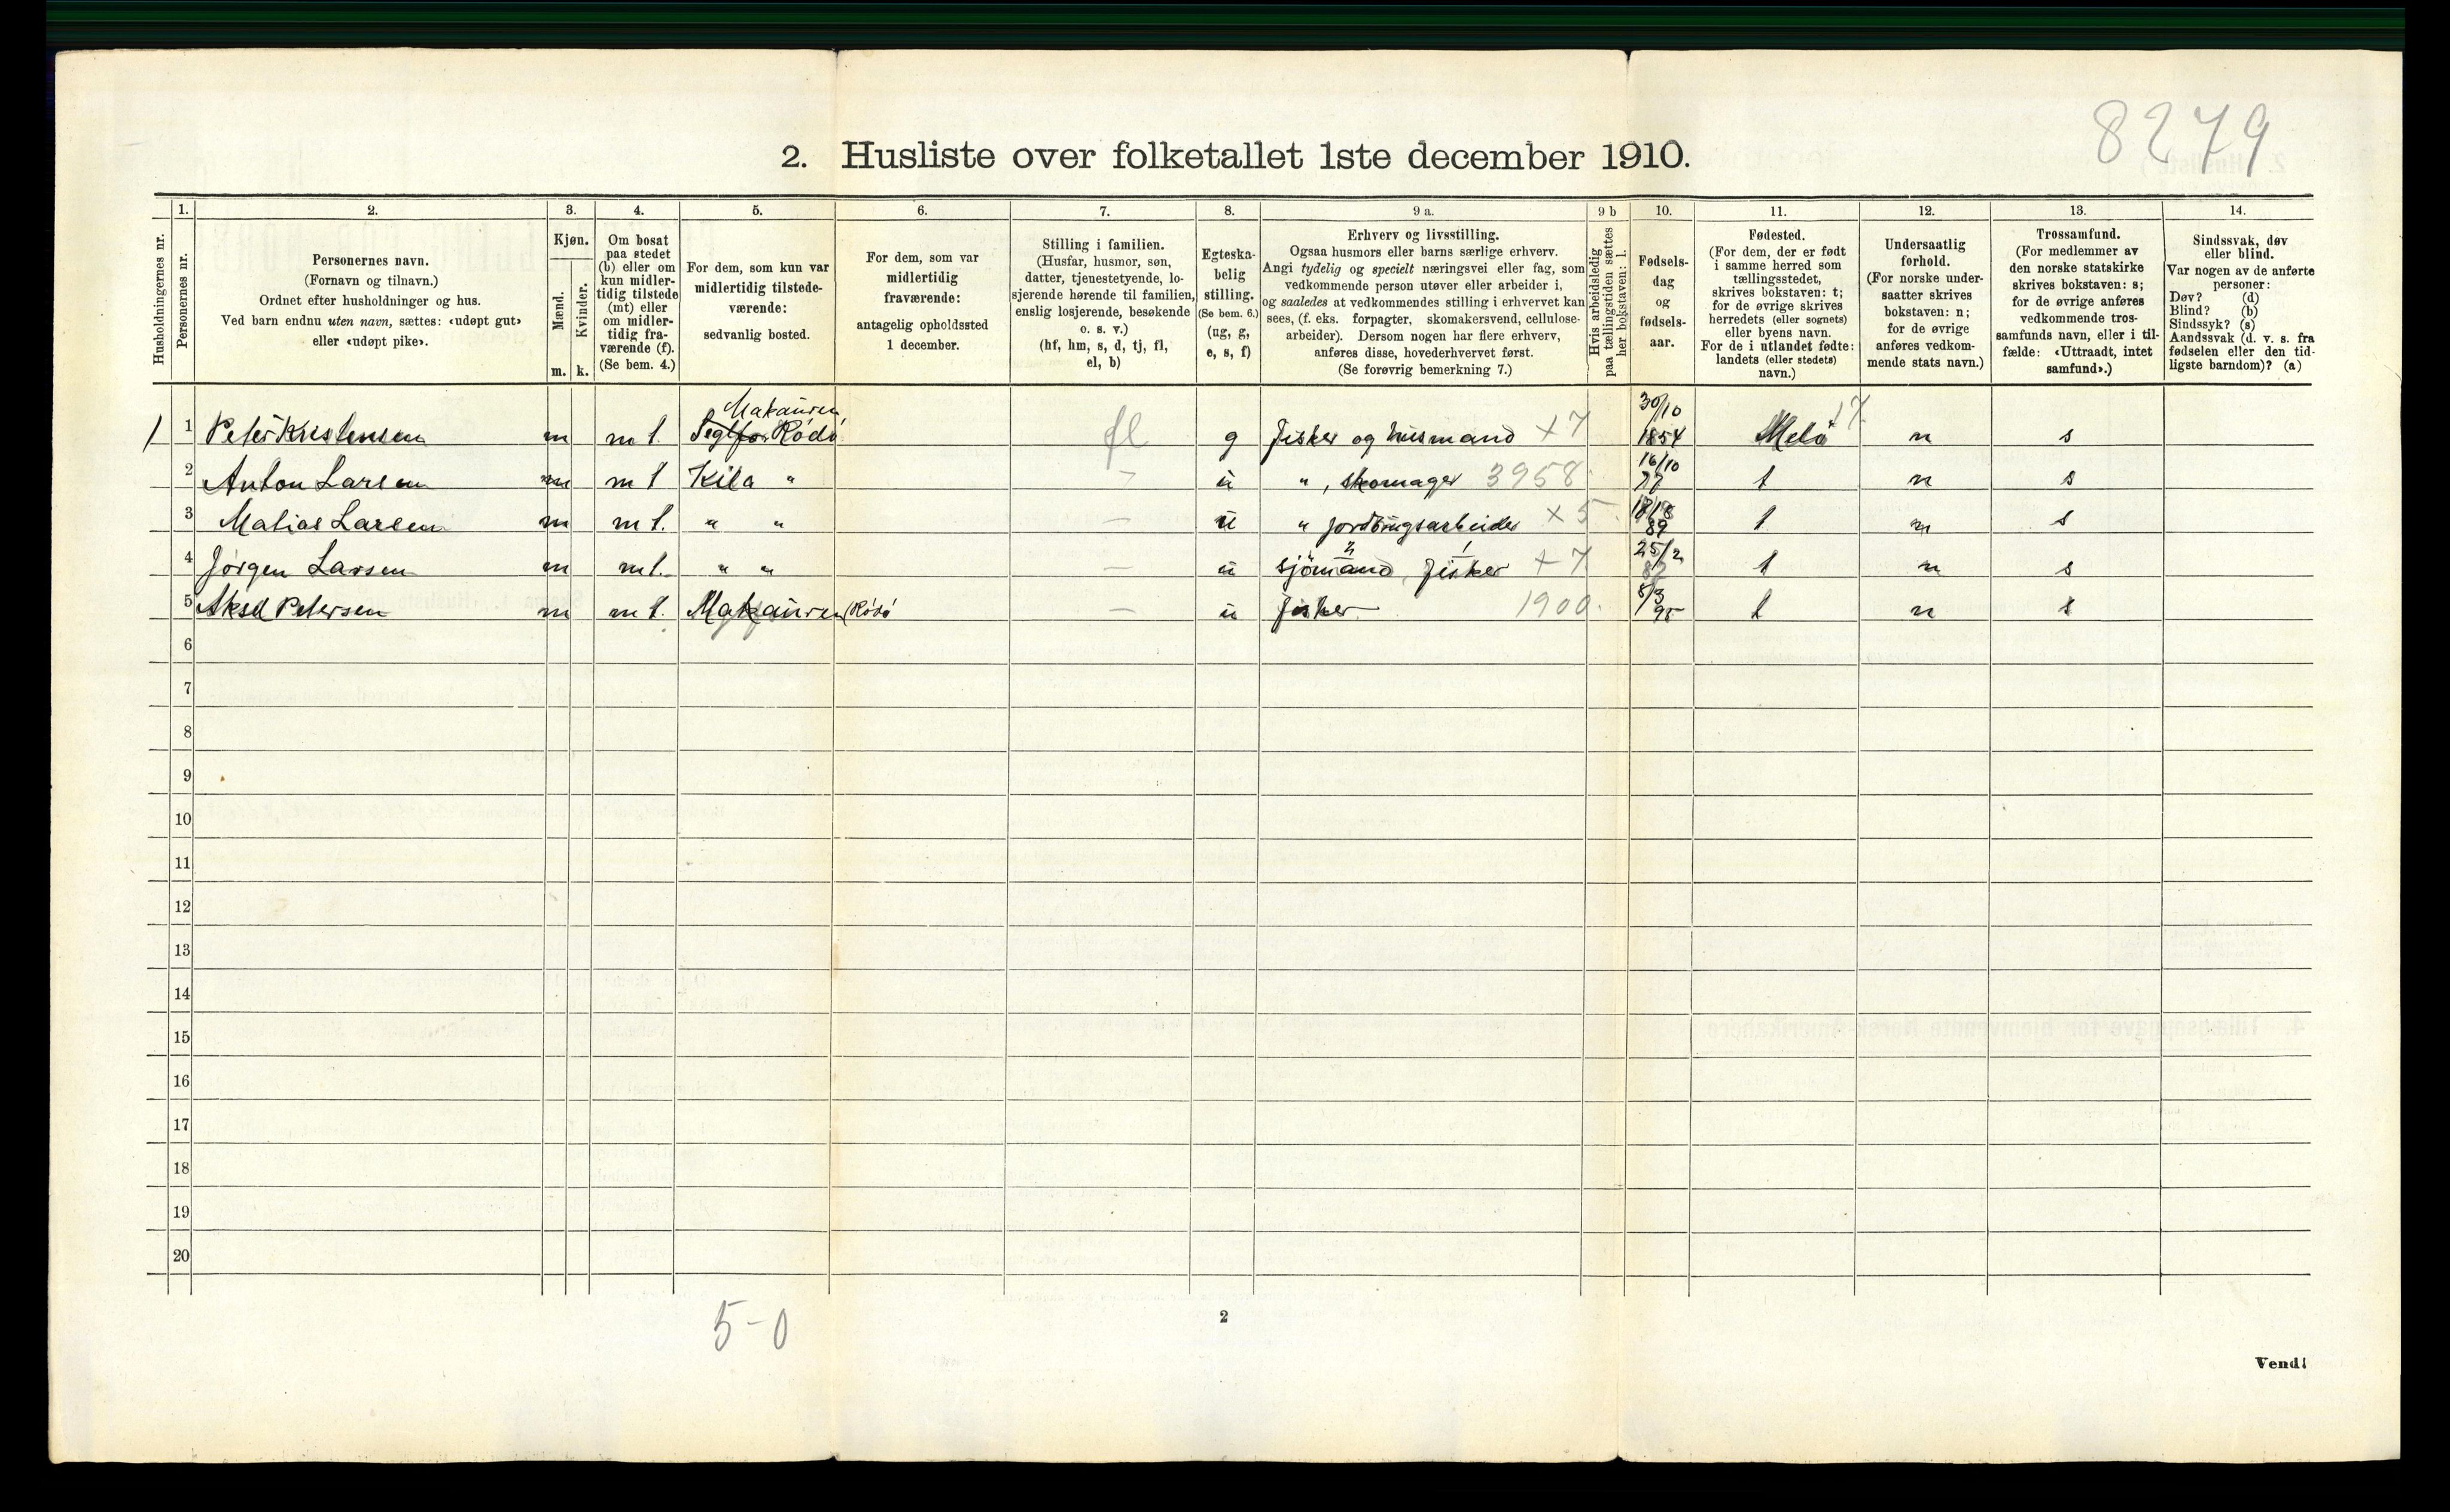 8279
2. Husliste over folketallet 1ste december 1910.
Husholdningernes nr.
1.
Personernes nr.
2.
Personernes navn.
(Fornavn og tilnavn.)
Ordnet efter husholdninger og hus.
Ved barn endnu uten navn, sættes: «udøpt gut»
eller «udøpt pike».
3.
Kjøn.
Mænd.
Kvinder.
m. k.
4.
Om bosat
paa stedet
(b) eller om
kun midler-
tidig tilstede
(mt) eller
om midler-
tidig fra-
værende (f).
(Se bem. 4.)
5.
For dem, som kun var
midlertidig tilstede-
værende:
sedvanlig bosted.
6.
For dem, som var
midlertidig
fraværende:
antagelig opholdssted
1 december.
7.
Stilling i familien.
(Husfar, husmor, søn,
datter, tjenestetyende, lo-
sjerende hørende til familien,
enslig losjerende, besøkende
o. s. v.)
(hf, hm, s, d, tj, fl,
el, b)
8.
Egteska-
belig
stilling.
(Se bem. 6.)
(ug, g,
e, s, f)
9 a.
Erhverv og livsstilling.
Ogsaa husmors eller barns særlige erhverv.
Angi tydelig og specielt næringsvei eller fag, som
vedkommende person utøver eller arbeider i,
og saaledes at vedkommendes stilling i erhvervet kan
sees, (f. eks. forpagter, skomakersvend, cellulose-
arbeider). Dersom nogen har flere erhverv,
anføres disse, hovederhvervet først.
(Se forøvrig bemerkning 7.)
9 b
Hvis arbeidsledig
paa tællingstiden sættes
her bokstaven: l.
10.
Fødsels-
dag
og
fødsels-
aar.
11.
Fødested.
(For dem, der er født
i samme herred som
tællingsstedet,
skrives bokstaven: t;
for de øvrige skrives
herredets (eller sognets)
eller byens navn.
For de i utlandet fødte:
landets (eller stedets)
navn.)
12.
Undersaatlig
forhold.
(For norske under-
saatter skrives
bokstaven: n;
for de øvrige
anføres vedkom-
mende stats navn.)
13.
Trossamfund.
(For medlemmer av
den norske statskirke
skrives bokstaven: s;
for de øvrige anføres
vedkommende tros-
samfunds navn, eller i til-
fælde: «Uttraadt, intet
samfund».)
14.
Sindssvak, døv
eller blind.
Var nogen av de anførte
personer:
Døv? (d)
Blind? (b)
Sindssyk? (s)
Aandssvak (d. v. s. fra
fødselen eller den tid-
ligste barndom)? (a)
Makauren 30/10 17
1 Peter Kristensen m mt. Rödö fl g Fisker og husmand +7 1854 Melö n s
2 Anton Larsen m mt Kila " - u ", skomager 3958 16/10 77 t n s
3 Matias Larsen m mt. " " - u " jordbrugsarbeider ×5 89 t n s
4 Jørgen Larsen m mt. " " - u sjömand 2 Fisker 1 +7 25/2 t n s
5 Aksel Petersen m mt. Makauren Rödö - u Fisker 1900 5/3 95 t n s
6
7
8
9
10
11
12
13
14
15
16
17
18
19
20
5-0
2
Vend!